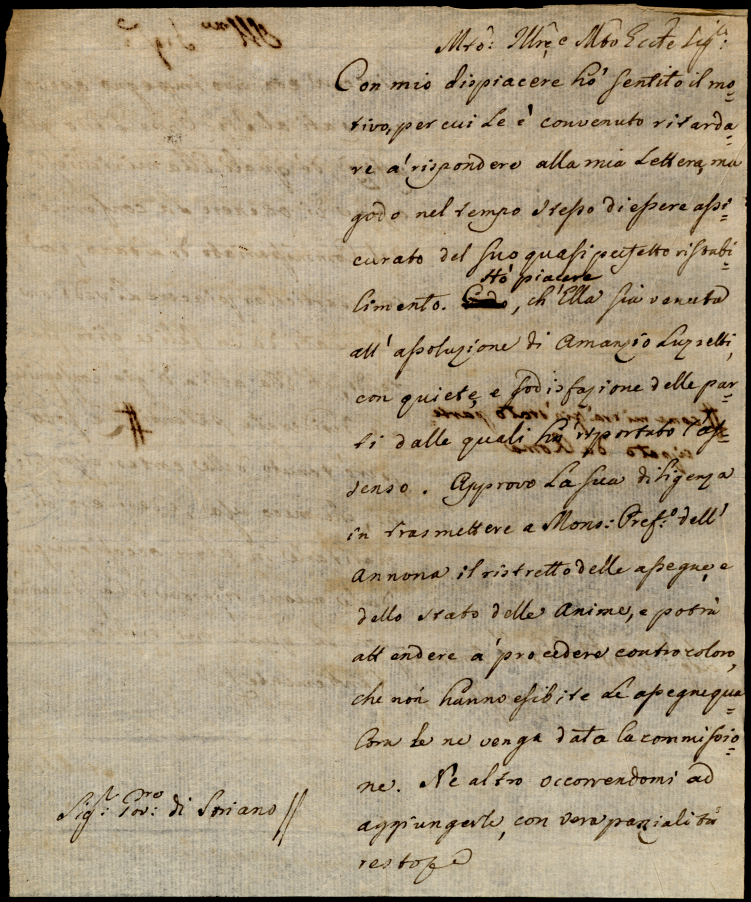 Mto: Illre e Mto Eccte Sigre:
Con mio dispiacere hò sentito il mo=
tivo, per cui Le è convenuto ritarda=
re a' rispondere alla mia Lettera, ma
godo nel tempo stesso di essere assi=
curato del suo quasi perfetto ristabi=
Hò piacere
limento. , ch'Ella sia venuta
all'assoluzione di Amanzio Luzzetti,
con quiete, e sodisfazione delle par=
ti dalle quali ha riportato l'as=
senso. Approvo La sua diligenza
in trasmettere a Mons: Prefo dell'
Annona il ristretto delle assegne, e
dello stato delle Anime, e potrà
attendere a' procedere contro coloro,
che non hanno esibite Le assegne qua=
lora Le ne venga data la commissio=
ne. Ne altro occorrendomi ad
aggiungerle, con vera parzialità
resto
Sigr: Govre: di Soriano //